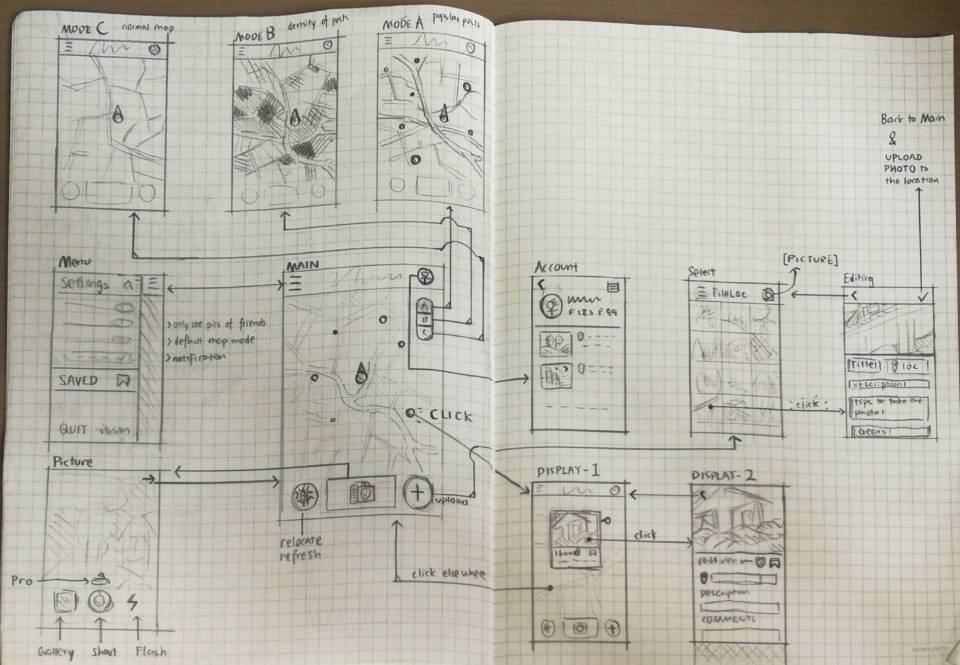 MODE C normal map
MODE B density of posts
MODE A popular posts
Back to Main
&
UPLOAD
PHOTO to
the location
Menu
Settings
> only see pics of friends
> default map mode
> notification
SAVED
QUIT
MAIN
A
B
C
CLICK
upload
relocate
refresh
click elsewhere
Account
Select
FileLoc
[PICTURE]
click
Editing
Title!
loc!
Description!
tips to take the
photo!
Gears!
Picture
Pro
Gallery
Shoot
Flash
DISPLAY-1
click
DISPLAY-2
Description
COMMENTS